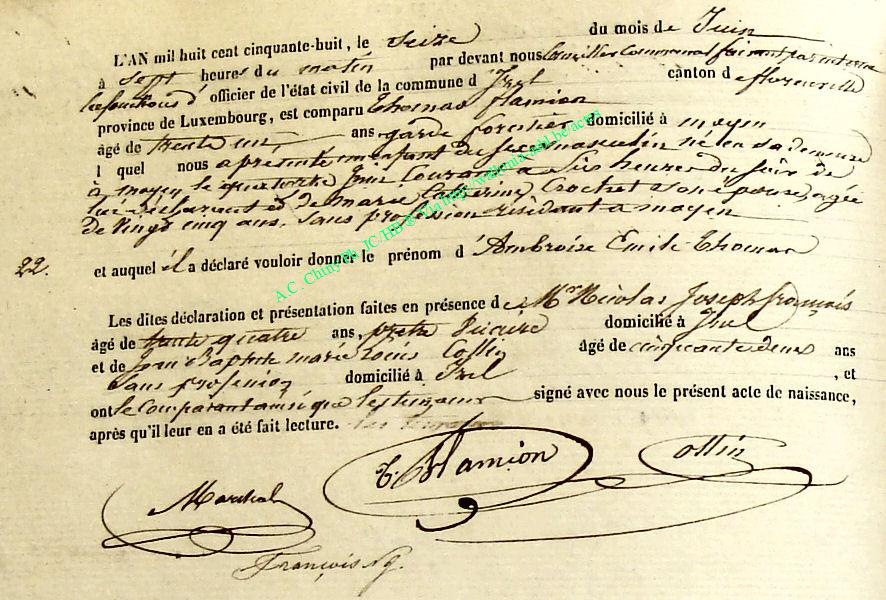 L'AN mil huit cent cinquante-huit, le Seize du mois de Juin
à Sept heures du matin par devant nous Conseiller Communal faisant par interim
les fonctions d'officier de l'état civil de la commune d'Izel canton de florenville
province de Luxembourg, est comparu Thomas flamion
âgé de trente un, ans garde forestier domicilié à moyen
l quel nous a présenté un enfant du sexe masculin né en sa demeure
à moyen le quatorze Juin courant à Six heures du soir de
lui déclarant et de marie Catherine Crochet son épouse, agée
de vingt cinq ans, sans profession résidant a moyen
22. et auquel il a déclaré vouloir donner le prénom d'Ambroise Emile Thomas
Les dites déclaration et présentation faites en présence de Mr Nicolas Joseph françois
âgé de trente quatre ans, pretre vicaire domicilié à Izel
et de Jean Baptiste marie louis Collin âgé de cinquante deux ans
sans profession domicilié à Izel , et
ont le Comparant ainsi que les temoins signé avec nous le présent acte de naissance,
après qu'il leur en a été fait lecture.
T. flamion Collin
Marchal
François
A.C. Chiny Ph. JC HB